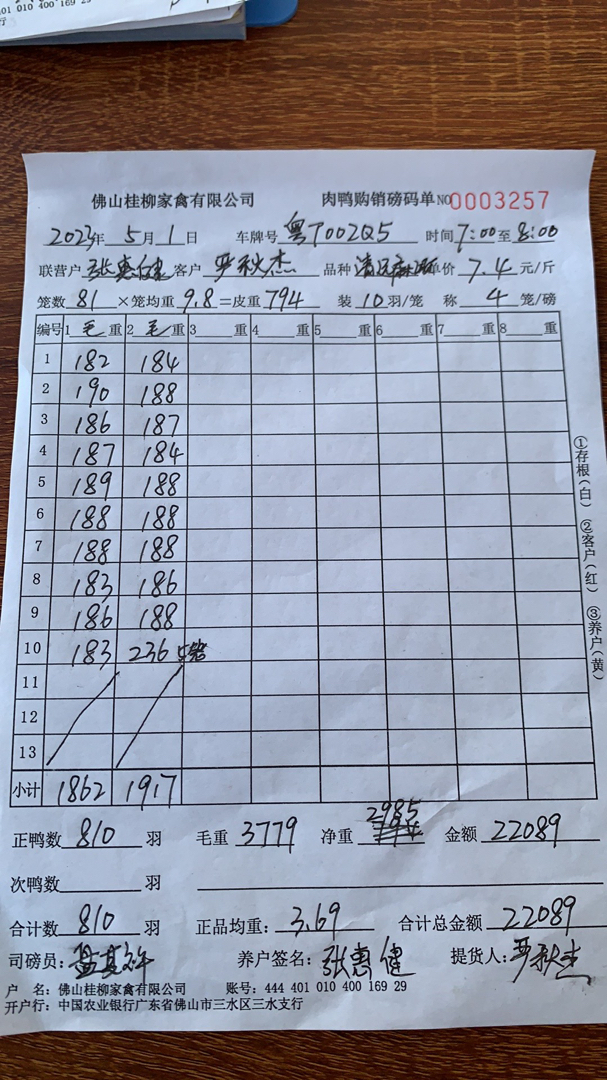 401 010 400 169 29
行
佛山桂柳家禽有限公司 肉鸭购销磅码单 NO 0003257
2023年 5月 1日 车牌号 粤T002Q5 时间 7:00至 8:00
联营户 张惠健 客户 严秋杰 品种 单价 7.4 元/斤
笼数 81 ×笼均重 9.8 =皮重 794 装 10 羽/笼 称 4 笼/磅
编号 1 毛 重 2 毛 重 3 重 4 重 5 重 6 重 7 重 8 重
1 182 184
2 190 188
3 186 187
4 187 184
5 189 188
6 188 188
7 188 188
8 183 186
9 186 188
10 183 236 5笼
11
12
13
小计 1862 1917
①存根(白) ②客户(红) ③养户(黄)
正鸭数 810 羽 毛重 3779 净重 2985 金额 22089
次鸭数 羽
合计数 810 羽 正品均重: 3.69 合计总金额 22089
司磅员: 养户签名: 张惠健 提货人: 严秋杰
户 名: 佛山桂柳家禽有限公司 账号: 444 401 010 400 169 29
开户行: 中国农业银行广东省佛山市三水区三水支行